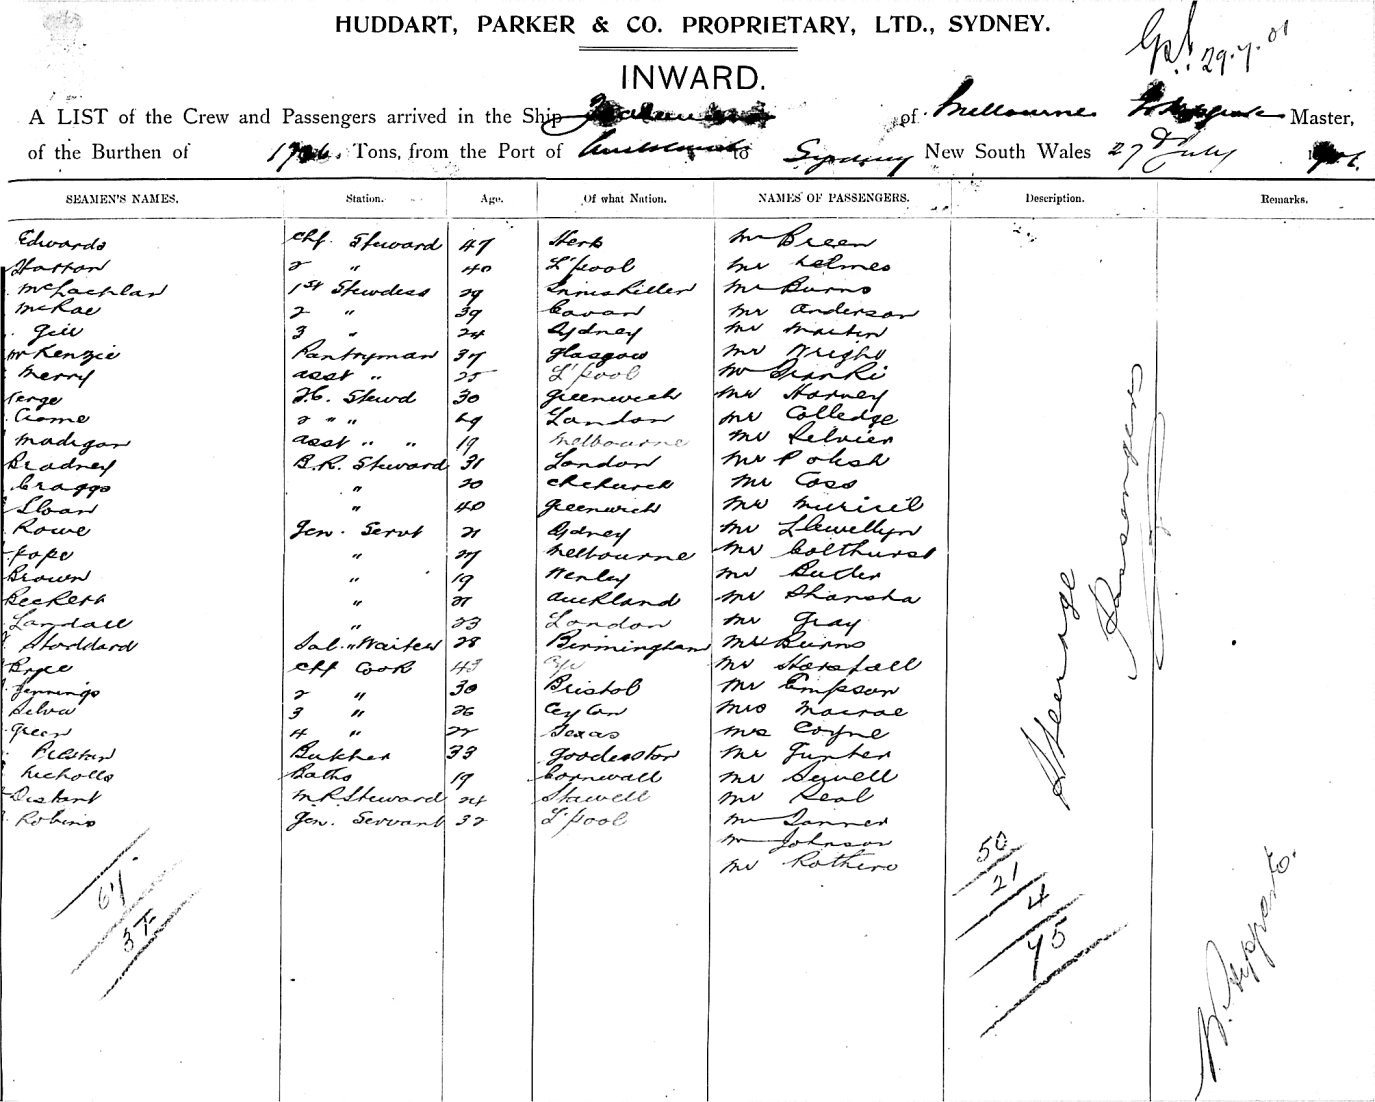 HUDDART, PARKER & CO. PROPRIETARY, LTD., SYDNEY.
29.7.01
INWARD.
A LIST of the Crew and Passengers arrived in the Ship of Melbourne Master,
of the Burthen of Tons, from the Port of to Sydney New South Wales 27 July
SEAMEN'S NAMES. Station. Age. Of what Nation. NAMES OF PASSENGERS. Description. Remarks.
Edwards Chf. Steward 47 Herts Mr Breen
Hatton 2 " 40 L'pool Mr Helmes
McLachlan 1st Stewdess 29 Inniskillen Mr Burns
McRae 2 " 39 Cavan Mr Anderson
Gill 3 " 24 Sydney Mr Martin
McKenzie Pantryman 37 Glasgow Mr Wright
Merry asst " 25 L'pool Mr
Verge F.C. Stewd 30 Greenwich Mr Harvey
Crome 2 " " 49 London Mr Colledge
Madigan asst " " 19 Melbourne Mr
Bradney B.R. Steward 31 London Mr
Craggs " 20 Chchurch Mr Coss
Sloan " 40 Greenwich Mr
Rowe Gen. Servt 21 Sydney Mr Llewellyn
Pope " 27 Melbourne Mr Colthurst
Brown " 19 Henley Mr Butler
Beckett " 21 Auckland Mr
Landall " 23 London Mr Gray
Stoddard Sal. " Waiter 28 Birmingham Mr Burns
Bryce Chf Cook 43 Mr Horsfall
Jennings 2 " 30 Bristol Mr Empson
Silva 3 " 26 Ceylon Mrs Macrae
Green 4 " 22 Texas Mrs Coyne
Butcher 33 Mr Gunter
Nicholls Baths 19 Cornwall Mr Sewell
Distant M.R. Steward 24 Stawell Mr Real
Robins Gen. Servant 32 L'pool Mr Tanner
Mr Johnson
Mr Rothero
Steerage
Passengers
67
37
50
21
4
75